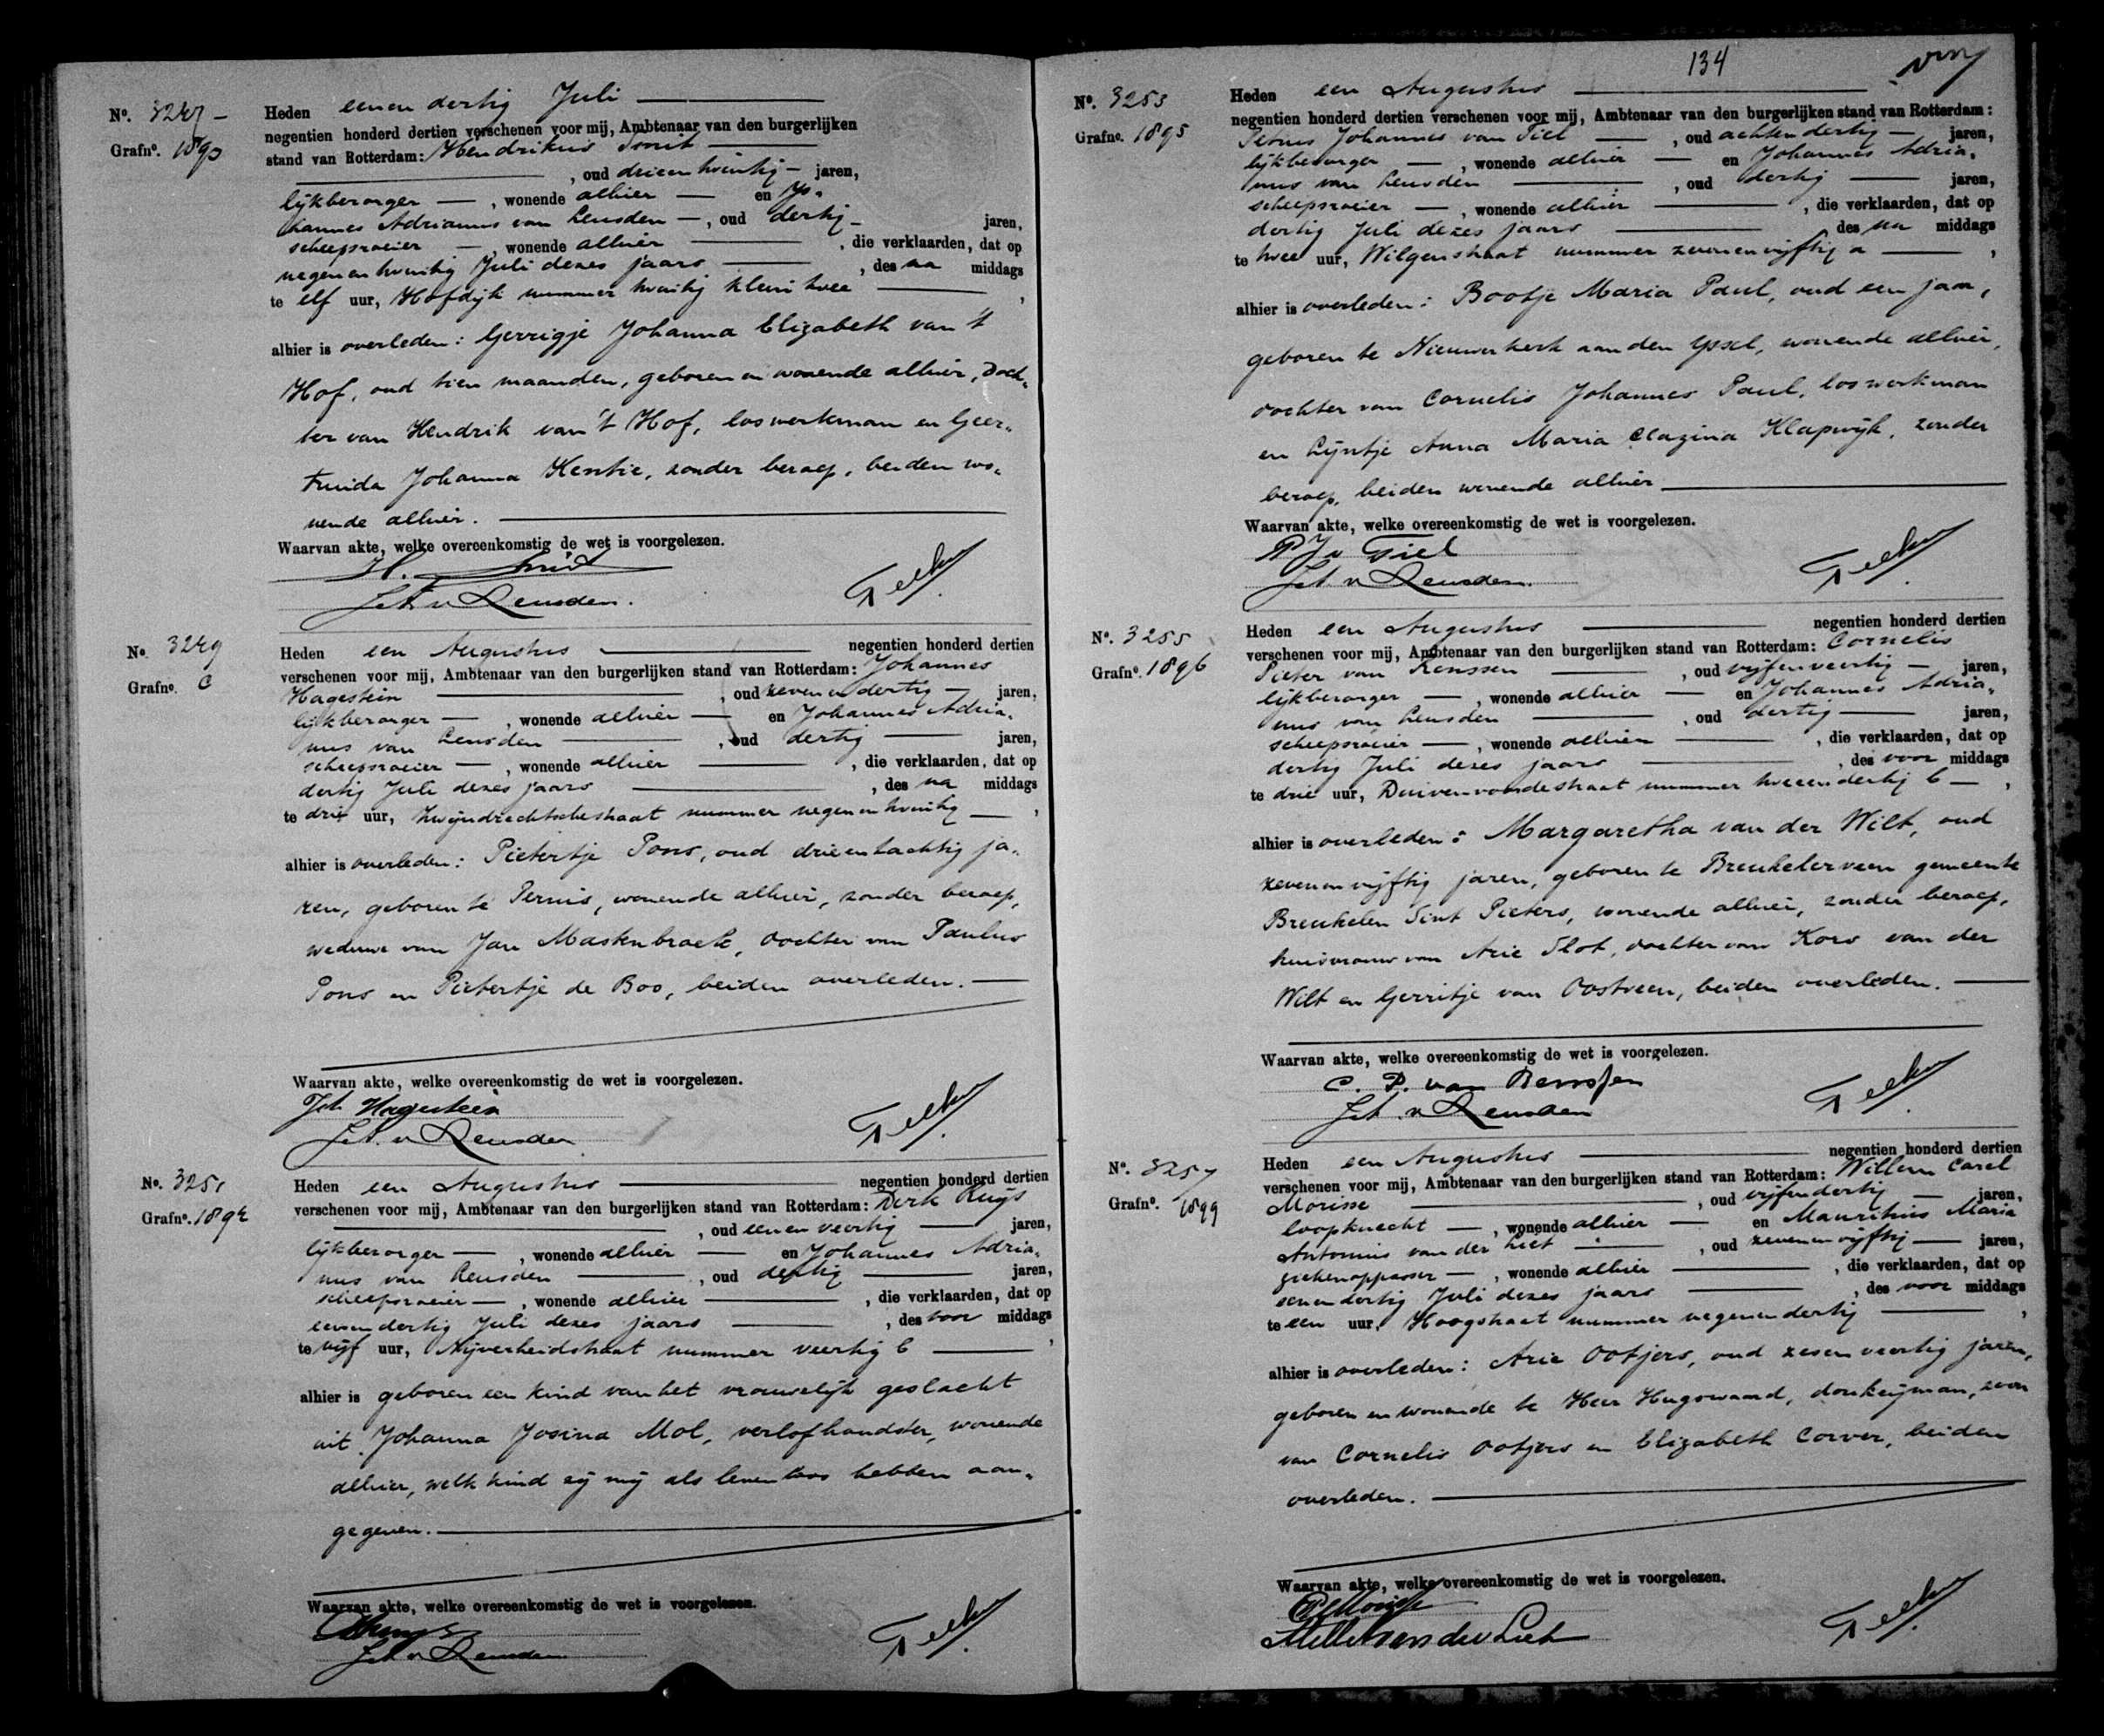 No. 3247 -
Grafno. 1893
Heden eenen dertig Juli
negentien honderd dertien verschenen voor mij, Ambtenaar van den burgerlijken
stand van Rotterdam: Hendrikus Smit
, oud drieentwintig jaren,
lijkbezorger , wonende alhier en Jo-
hannes Adrianus van Leusden , oud dertig jaren,
scheepsroeier , wonende alhier , die verklaarden, dat op
negenentwintig Juli dezes jaars , des na middags
te elf uur, Hofdijk nummer twintig klein twee ,
alhier is overleden: Gerrigje Johanna Elizabeth van 't
Hof, oud tien maanden, geboren en wonende alhier, doch-
ter van Hendrik van 't Hof, loswerkman en Geer-
truida Johanna Kentie, zonder beroep, beiden wo-
nende alhier.
Waarvan akte, welke overeenkomstig de wet is voorgelezen.
H. Smit
Joh. v Leusden.
No. 3249
Grafno. C
Heden een Augustus negentien honderd dertien
verschenen voor mij, Ambtenaar van den burgerlijken stand van Rotterdam: Johannes
Hagestein , oud zevenendertig jaren,
lijkbezorger , wonende alhier en Johannes Adria-
nus van Leusden , oud dertig jaren,
scheepsroeier , wonende alhier , die verklaarden, dat op
dertig Juli dezes jaars , des na middags
te drie uur, Zwijndrechtschestraat nummer negenentwintig ,
alhier is overleden: Pietertje Pons, oud drieentachtig ja-
ren, geboren te Pernis, wonende alhier, zonder beroep,
weduwe van Jan Mastenbroek, dochter van Paulus
Pons en Pietertje de Boo, beiden overleden.
Waarvan akte, welke overeenkomstig de wet is voorgelezen.
Joh Hagestein
Joh. v Leusden
No. 3251
Grafno. 1894
Heden een Augustus negentien honderd dertien
verschenen voor mij, Ambtenaar van den burgerlijken stand van Rotterdam: Dirk Ruys
, oud eenenveertig jaren,
lijkbezorger , wonende alhier en Johannes Adria-
nus van Leusden , oud dertig jaren,
scheepsroeier , wonende alhier , die verklaarden, dat op
eenendertig Juli dezes jaars , des voor middags
te vijf uur, Nijverheidstraat nummer veertig b ,
alhier is geboren een kind van het vrouwelijk geslacht
uit Johanna Josina Mol, verlofhoudster, wonende
alhier, welk kind zij mij als levenloos hebben aan-
gegeven.
Waarvan akte, welke overeenkomstig de wet is voorgelezen.
Joh. v Leusden
134
No. 3253
Grafno. 1895
Heden een Augustus
negentien honderd dertien verschenen voor mij, Ambtenaar van den burgerlijken stand van Rotterdam:
Petrus Johannes van Tiel , oud achtendertig jaren,
lijkbezorger , wonende alhier en Johannes Adria-
nus van Leusden , oud dertig jaren,
scheepsroeier , wonende alhier , die verklaarden, dat op
dertig Juli dezes jaars des na middags
te twee uur, Wilgenstraat nummer zevenenvijftig a ,
alhier is overleden: Bootje Maria Paul, oud een jaar,
geboren te Nieuwerkerk aan den Yssel, wonende alhier,
dochter van Cornelis Johannes Paul, loswerkman
en Lijntje Anna Maria Clazina Klapwijk, zonder
beroep, beiden wonende alhier
Waarvan akte, welke overeenkomstig de wet is voorgelezen.
P J v Tiel
Joh v Leusden.
No. 3255
Grafno. 1896
Heden een Augustus negentien honderd dertien
verschenen voor mij, Ambtenaar van den burgerlijken stand van Rotterdam: Cornelis
Pieter van , oud vijfenveertig jaren,
lijkbezorger , wonende alhier en Johannes Adria-
nus van Leusden , oud dertig jaren,
scheepsroeier , wonende alhier , die verklaarden, dat op
dertig Juli dezes jaars , des voor middags
te drie uur, Duivenvoordestraat nummer tweeendertig b ,
alhier is overleden: Margaretha van der Wilt, oud
zevenenvijftig jaren, geboren te Breukelerveen gemeente
Breukelen Sint Pieters, wonende alhier, zonder beroep,
huisvrouw van Arie Slot, dochter van Kors van der
Wilt en Gerritje van Oostveen, beiden overleden.
Waarvan akte, welke overeenkomstig de wet is voorgelezen.
C. P. van
Joh. v Leusden
No. 3257
Grafno. 1899
Heden een Augustus negentien honderd dertien
verschenen voor mij, Ambtenaar van den burgerlijken stand van Rotterdam: Willem Carel
Morisse , oud vijfendertig jaren,
loopknecht , wonende alhier en Mauritius Maria
Antonius van der Liet , oud zevenenvijftig jaren,
ziekenoppasser , wonende alhier , die verklaarden, dat op
eenendertig Juli dezes jaars , des voor middags
te een uur, Hoogstraat nummer negenendertig ,
alhier is overleden: Arie Ootjers, oud zesenveertig jaren,
geboren en wonende te Heer Hugowaard, donkeyman, zoon
van Cornelis Ootjers en Elizabeth Corver, beiden
overleden.
Waarvan akte, welke overeenkomstig de wet is voorgelezen.
van der Liet